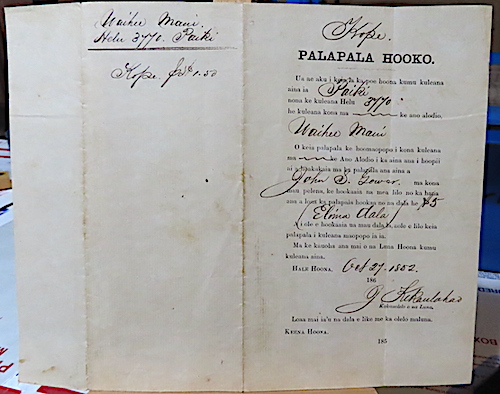 Waihee Maui.
Helu 3770. Paiki
Kope. pd $1.50
Kope.
PALAPALA HOOKO.
Ua ae aku i keia la ka poe hoona kumu kuleana
aina ia Paiki
nona ke kuleana Helu 3770
he kuleana kona ma ke ano alodio,
Waihee Maui
O keia palapala ke hoomaopopo i kona kuleana
ma ke Ano Alodio i ka aina ana i hoopii
ai a hookaaia ma ka palapala ana aina a
John S. Gower. ma kona
mau polena, ke hookaaia no mau lilo no ka hana
ana a loaa ka palapala hookaa no na dala he $5
(Elima dala)
A i ole e hookaaia ua mau dala la, aole e lilo keia
palapala i kuleana maopopo ia ia.
Ma ke kauoha ana mai o na Luna Hoona kumu
kuleana aina.
HALE HOONA. Oct 27. 1852.
186
J Kekaulahao
Kakauolelo o na Luna.
Loaa mai ia'u na dala e like me ka olelo maluna.
KEENA HOONA.
185
BOX
MA